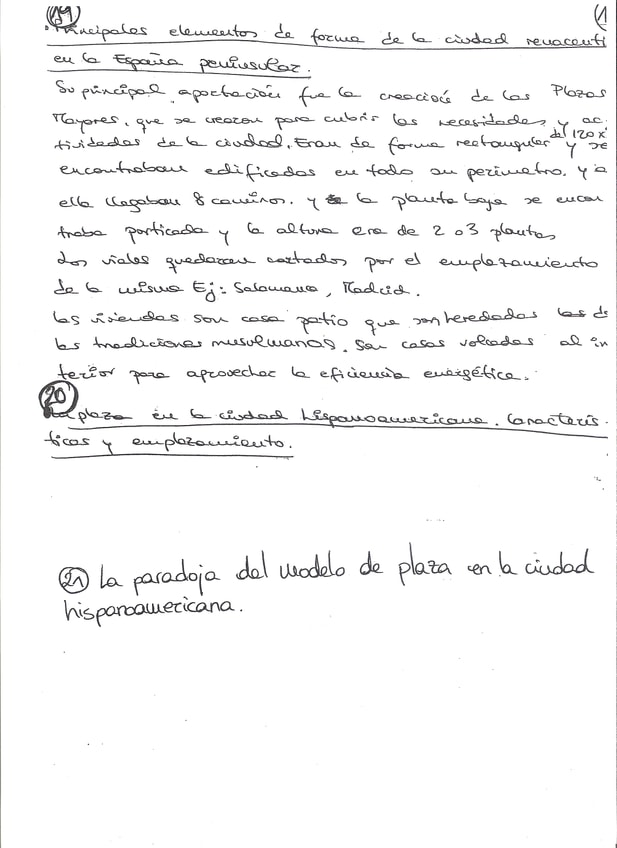 19
(1
· Principales elementos de forma de la ciudad renacenti
en la España peninsular.
Su principal aportación fue la creación de las Plazas
Mayores, que se crearon para cubrir las necesidades y ac-
tividades de la ciudad. Eran de forma rectangular y se
del 120 x
encontraban edificadas en todo su perímetro. y a
ella llegaban 8 caminos. y la planta baja se encon
traba porticada y la altura era de 2 o 3 plantas,
Los viales quedaron cortados por el emplazamiento
de la misma Ej: Salamanca, Madrid.
las viviendas son casa patio que son heredadas las de
las tradiciones musulmanas. Son casas volcadas al in
terior para aprovechar la eficiencia energética.
20
La plaza en la ciudad hispanoamericana. Caracterís-
ticas y emplazamiento.
21 La paradoja del modelo de plaza en la ciudad
hispanoamericana.